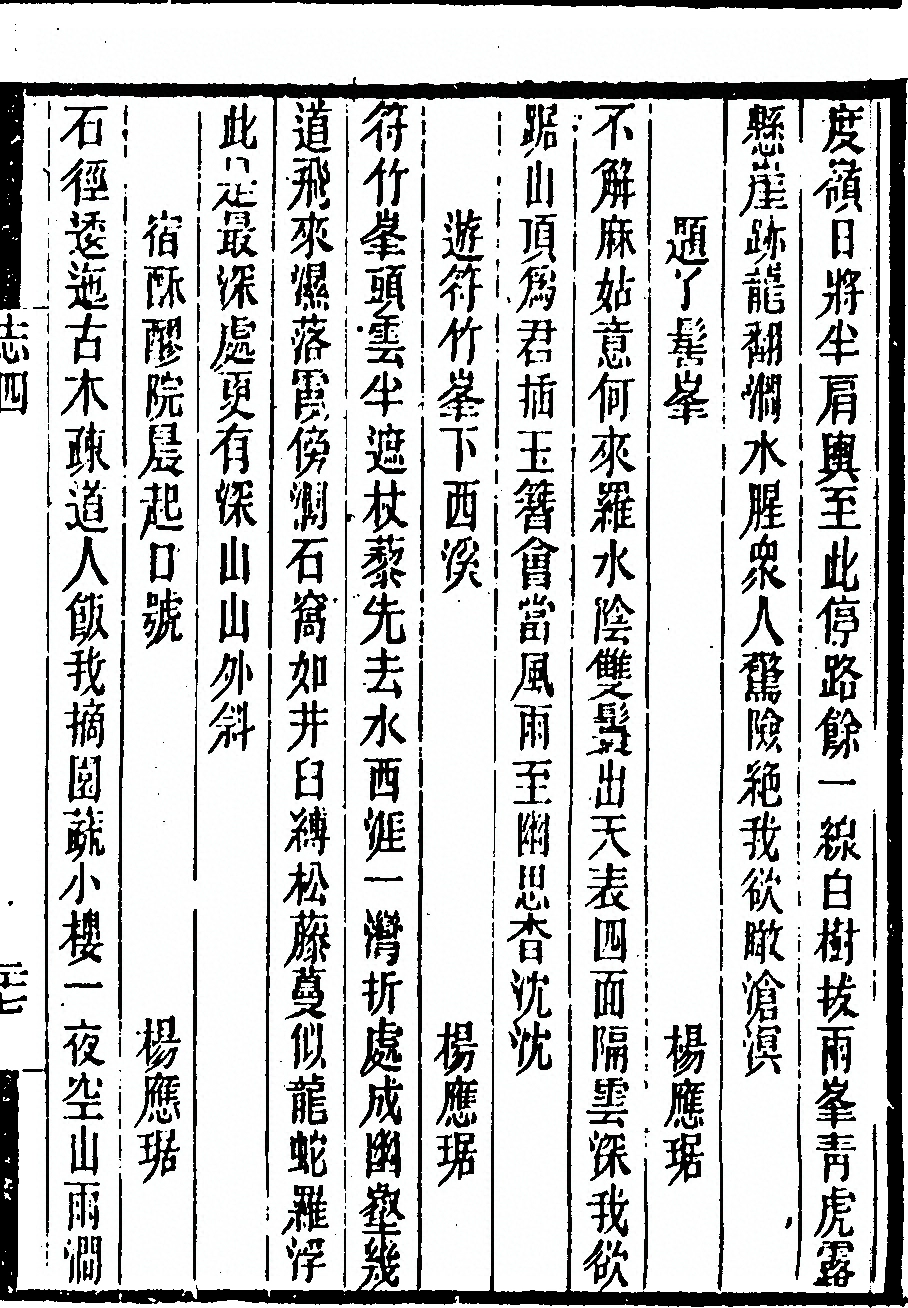 度嶺日將半肩輿至此停路餘一線白樹拔兩峯青虎露
懸崖跡龍翻澗水腥衆人驚險絶我欲瞰滄溟
題丫髻峯 楊應琚
不解麻姑意何來羅水陰雙鬟出天表四面隔雲深我欲
踞山頂爲君插玉簪會當風雨至幽思杳沈沈
遊符竹峯下西溪 楊應琚
符竹峯頭雲半遮杖藜先去水西涯一灣折處成幽壑幾
道飛來濕落霞傍澗石窩如井臼縛松藤蔓似龍蛇羅浮
此已是最深處更有深山山外斜
宿酥醪院晨起口號 楊應琚
石徑逶迤古木疎道人飯我摘園蔬小樓一夜空山雨澗
志四
二七